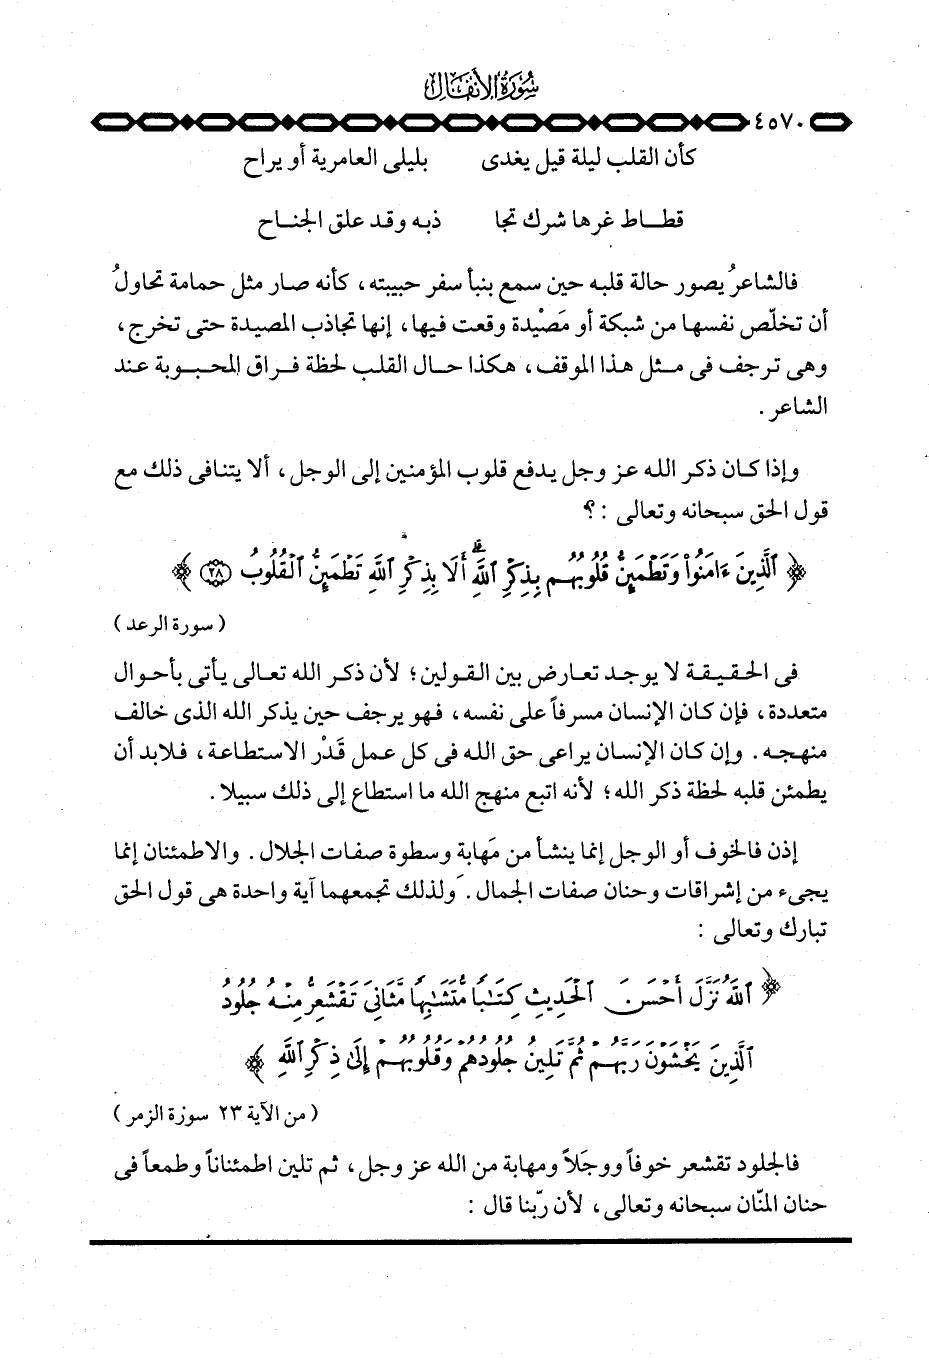 سُورَةُ الأَنفَالِ
٤٥٧٠
كأن القلب ليلة قيل يغدى بليلى العامرية أو يراح
قطــاط غرها شرك تجا ذبه وقد علق الجنــاح
فالشاعرُ يصور حالة قلبه حين سمع بنبأ سفر حبيبته، كأنه صار مثل حمامة تحاولُ
أن تخلّص نفسها من شبكة أو مَصْيدة وقعت فيها، إنها تجاذب المصيدة حتى تخرج،
وهى ترجف فى مثل هذا الموقف، هكذا حال القلب لحظة فراق المحبوبة عند
الشاعر.
وإذا كان ذكر الله عز وجل يدفع قلوب المؤمنين إلى الوجل، ألا يتنافى ذلك مع
قول الحق سبحانه وتعالى :؟
﴿ ٱلَّذِينَ ءَامَنُوا۟ وَتَطْمَئِنُّ قُلُوبُهُم بِذِكْرِ ٱللَّهِ ۗ أَلَا بِذِكْرِ ٱللَّهِ تَطْمَئِنُّ ٱلْقُلُوبُ ﴿٢٨﴾ ﴾
( سورة الرعد )
فى الحقيقة لا يوجد تعارض بين القولين؛ لأن ذكر الله تعالى يأتى بأحوال
متعددة، فإن كان الإنسان مسرفاً على نفسه، فهو يرجف حين يذكر الله الذى خالف
منهجه. وإن كان الإنسان يراعى حق الله فى كل عمل قَدْر الاستطاعة، فلابد أن
يطمئن قلبه لحظة ذكر الله؛ لأنه اتبع منهج الله ما استطاع إلى ذلك سبيلا.
إذن فالخوف أو الوجل إنما ينشأ من مَهابة وسطوة صفات الجلال. والاطمئنان إنما
يجىء من إشراقات وحنان صفات الجمال. ولذلك تجمعهما آية واحدة هى قول الحق
تبارك وتعالى :
﴿ ٱللَّهُ نَزَّلَ أَحْسَنَ ٱلْحَدِيثِ كِتَٰبًا مُّتَشَٰبِهًا مَّثَانِىَ تَقْشَعِرُّ مِنْهُ جُلُودُ
ٱلَّذِينَ يَخْشَوْنَ رَبَّهُمْ ثُمَّ تَلِينُ جُلُودُهُمْ وَقُلُوبُهُمْ إِلَىٰ ذِكْرِ ٱللَّهِ ﴾
( من الآية ٢٣ سورة الزمر )
فالجلود تقشعر خوفاً ووجَلاً ومهابة من الله عز وجل، ثم تلين اطمئناناً وطمعاً فى
حنان المنّان سبحانه وتعالى، لأن ربّنا قال :